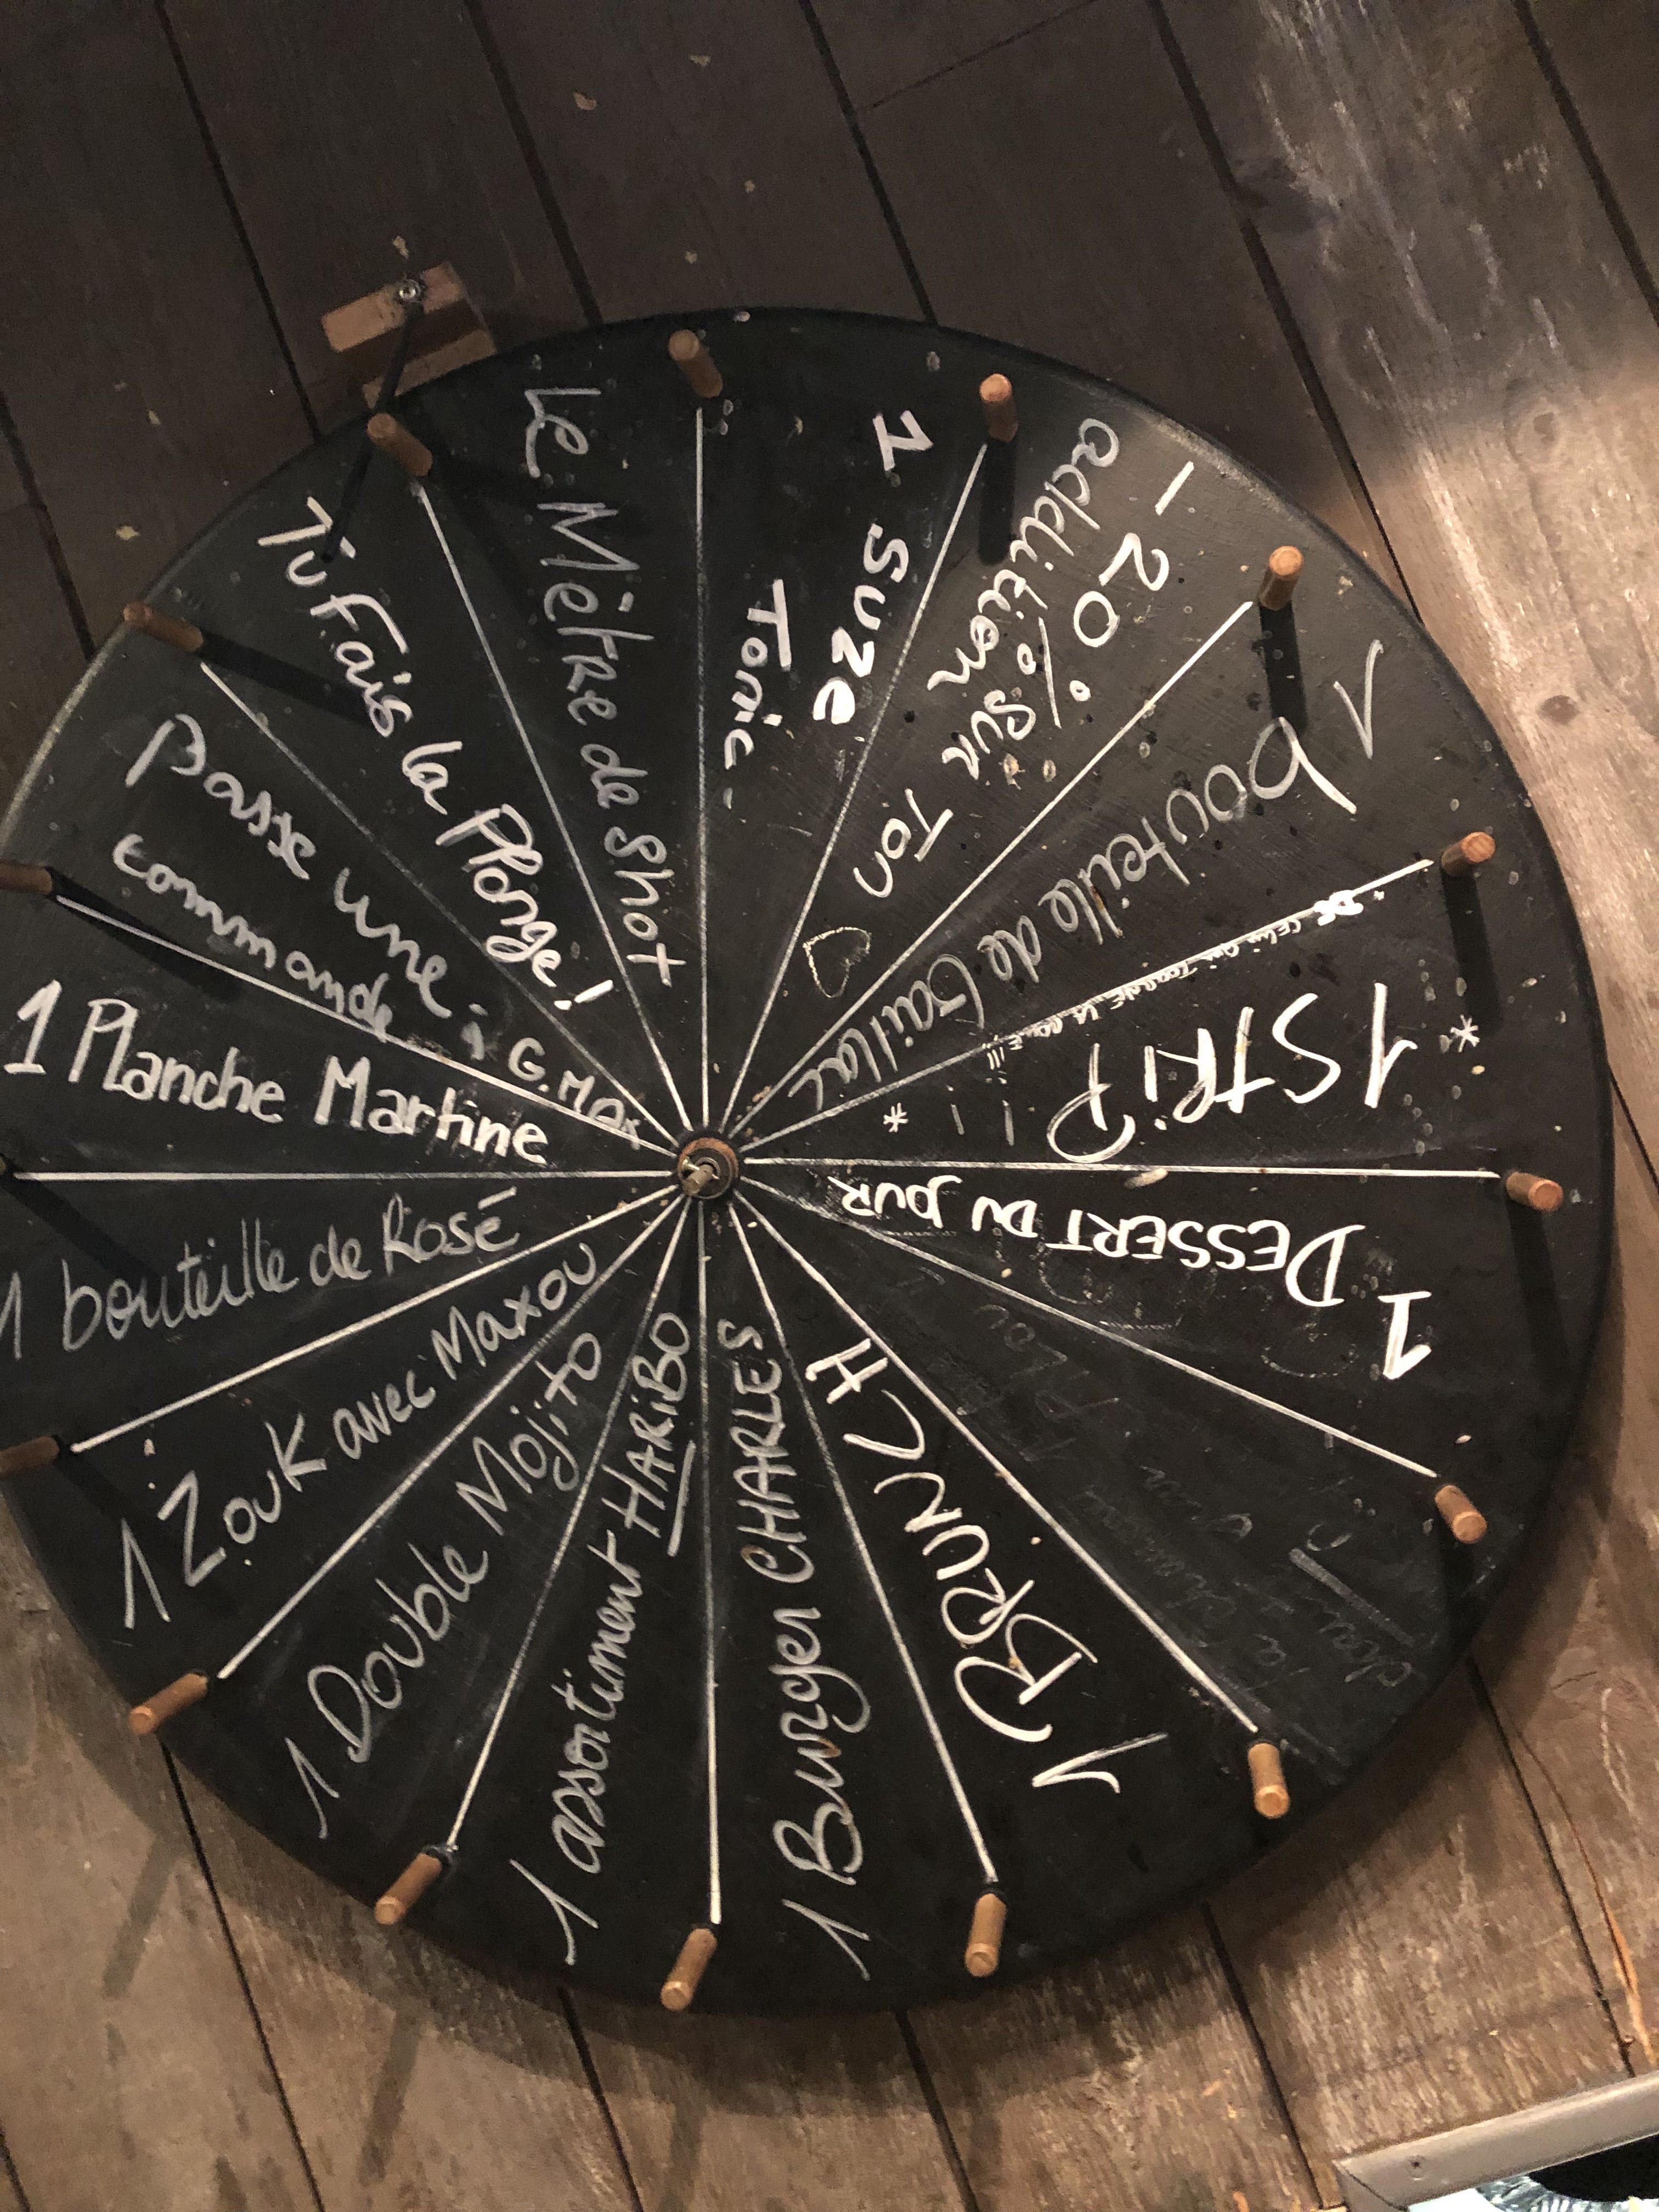 Le Mètre de Shot
1 Suze
Tonic
- 20% sur
addition
Ton
1 bouteille de Gaillac
1 STRIP !!! *
* DE CELUI QUI TOURNE LA ROUE!!!
1 DESSERT DU JOUR
1 BRUNCH
1 Burger CHARLES
1 assortiment HARiBO
1 Double Mojito
1 Zouk avec Maxou
1 bouteille de Rosé
1 Planche Martine
Passe une
commande à G.Max
Tu Fais la Plonge!